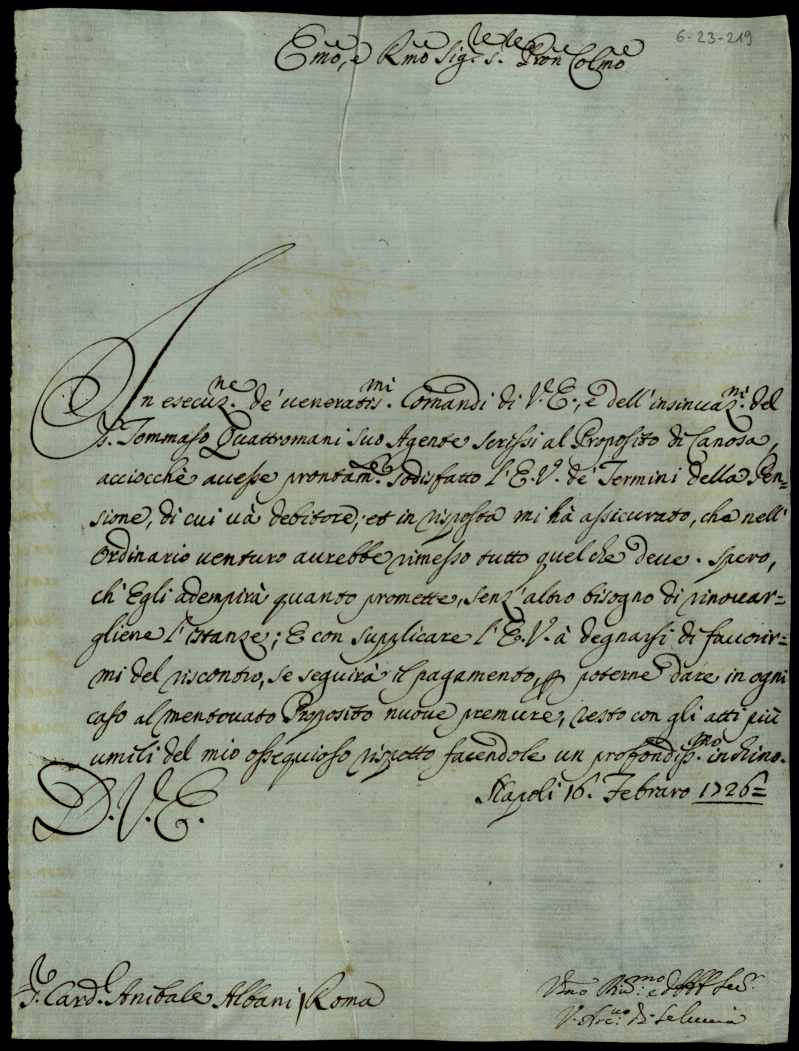 6-23-219
Emo, e Rmo Sig.re s.re Pron Colmo
In esecuz.ne de' veneratis.mi Comandi di V. E., e dell' insinuaz.ni del
S. Tommaso Quattromani suo Agente scrissi al Proposito di Canosa,
acciocchè avesse prontam.e sodisfatto l'E. V. de' Termini della Pen=
sione, di cui và debitore; et in risposta mi hà assicurato, che nell'
Ordinario venturo aurebbe rimesso tutto quel che deve. Spero,
ch' Egli adempirà quanto promette, senz' altro bisogno di rinovar=
gliene l'istanze; E con supplicare l'E. V. à degnarsi di favorir=
mi del riscontro, se seguirà il pagamento, p poterne dare in ogni
caso al mentovato Proposito nuove premure, resto con gli atti più
umili del mio ossequioso rispetto facendole un profondiss.mo inchino.
Napoli 16. Febraro 1726=
D. V. E.
S. Card.l Anibale Albani / Roma
V. Arc.